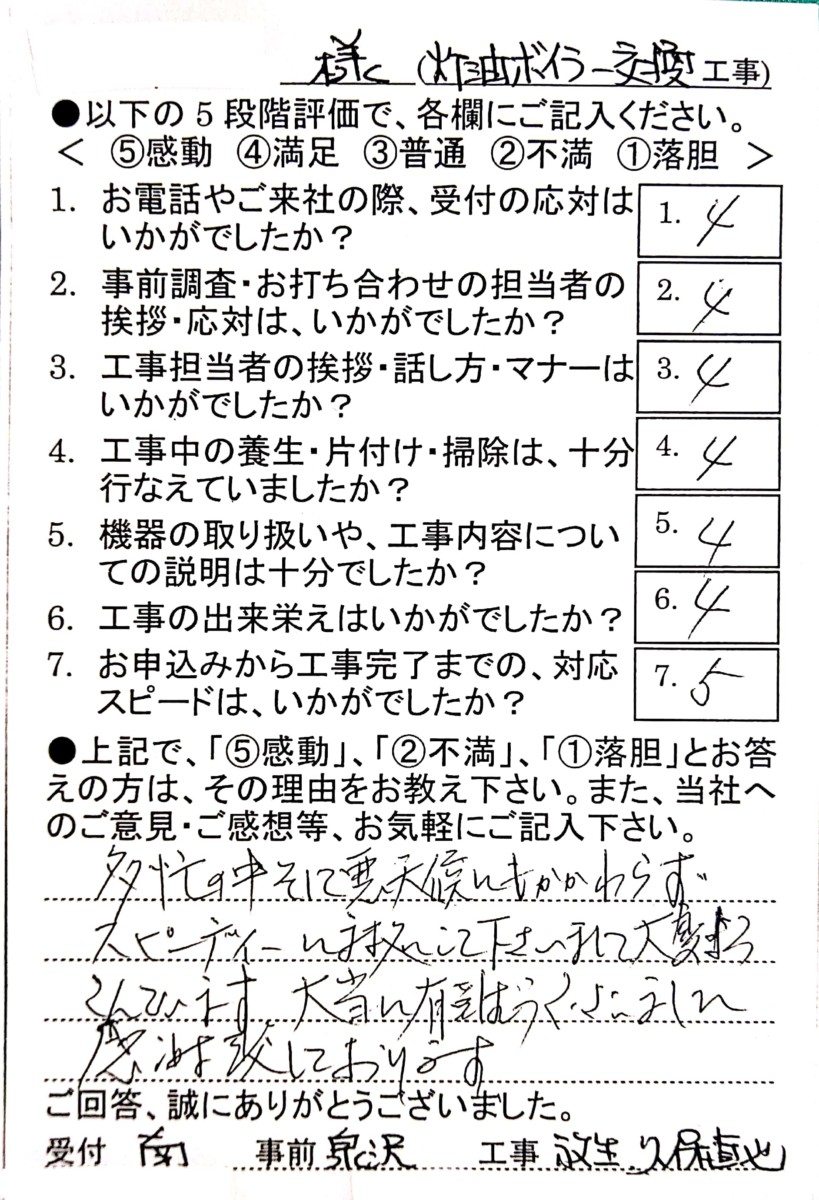 様 (灯油ボイラー交換工事)
●以下の5段階評価で、各欄にご記入ください。
< ⑤感動 ④満足 ③普通 ②不満 ①落胆 >
1. お電話やご来社の際、受付の応対は
いかがでしたか?
1. 4
2. 事前調査・お打ち合わせの担当者の
挨拶・応対は、いかがでしたか?
2. 4
3. 工事担当者の挨拶・話し方・マナーは
いかがでしたか?
3. 4
4. 工事中の養生・片付け・掃除は、十分
行なえていましたか?
4. 4
5. 機器の取り扱いや、工事内容につい
ての説明は十分でしたか?
5. 4
6. 工事の出来栄えはいかがでしたか?
6. 4
7. お申込みから工事完了までの、対応
スピードは、いかがでしたか?
7. 5
●上記で、「⑤感動」、「②不満」、「①落胆」とお答
えの方は、その理由をお教え下さい。また、当社へ
のご意見・ご感想等、お気軽にご記入下さい。
多忙の中そして悪天候にもかかわらず
スピーディーに対処して下さいまして大変よろ
こんでいます。大当に有難うございました
感謝致しております
ご回答、誠にありがとうございました。
受付 南 事前 泉沢 工事 久保直也